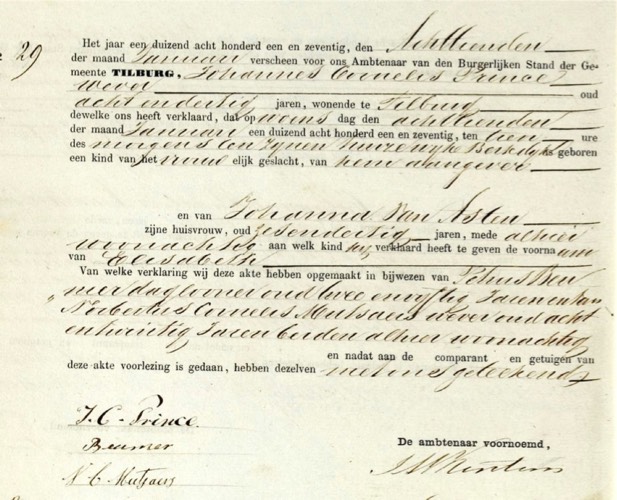 29
Het jaar een duizend acht honderd een en zeventig, den Achttienden
der maand Januari verscheen voor ons Ambtenaar van den Burgerlijken Stand der Ge-
meente TILBURG, Johannes Cornelis Prince
wever oud
acht en dertig jaren, wonende te Tilburg
dewelke ons heeft verklaard, dat op woens dag den achttienden
der maand Januari een duizend acht honderd een en zeventig, ten tien ure
des morgens ten zijnen huize wijk Berkdijk geboren
een kind van het vrouw elijk geslacht, van hem aangever
en van Johanna Van Asten
zijne huisvrouw, oud zesendertig jaren, mede alhier
woonachtig aan welk kind hij verklaard heeft te geven de voorna am
van Elisabeth
Van welke verklaring wij deze akte hebben opgemaakt in bijwezen van Petrus Beu
mer daglooner oud twee en vijftig Jaren en van
Norbertus Cornelis Mutsaers wever oud acht
en twintig Jaren beiden alhier woonachtig
en nadat aan de comparant en getuigen van
deze akte voorlezing is gedaan, hebben dezelven met ons geteekend
J. C. Prince.
Beumer
N. C. Mutsaers
De ambtenaar voornoemd,